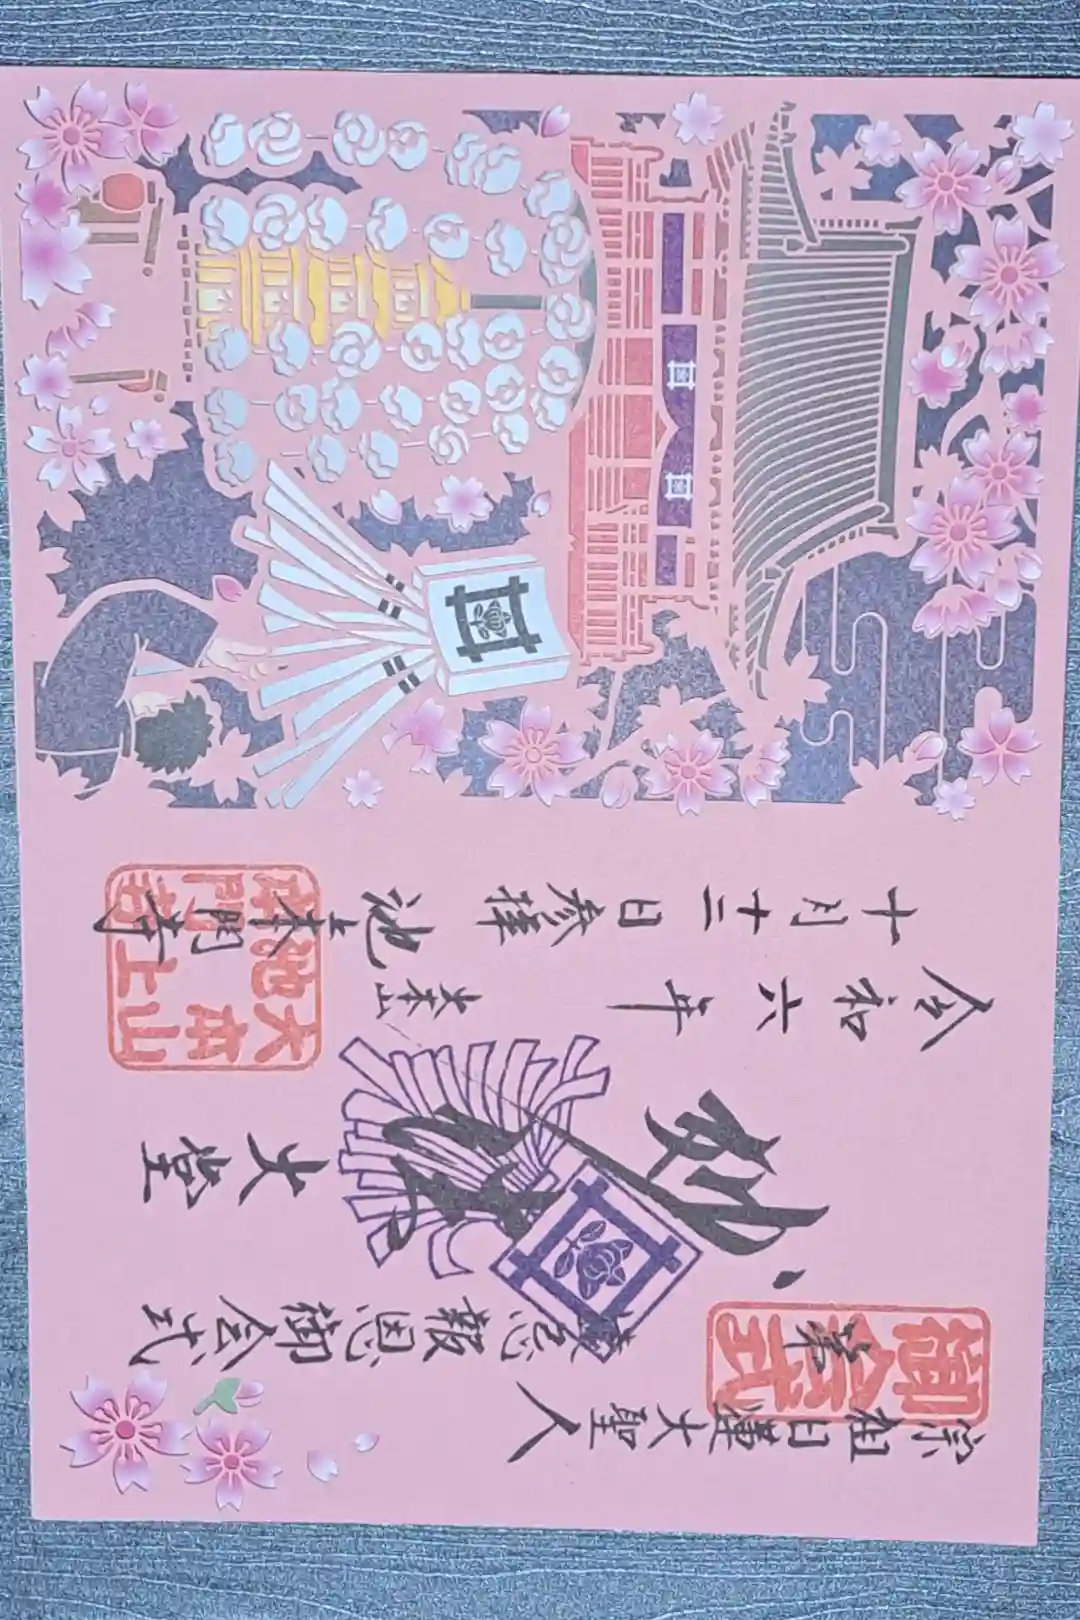 宗祖日蓮大聖人
第 遠忌報恩御会式
御会式
妙法
大堂
令和六年
十月十二日参拝
大本山
池上本門寺
大本山
池上
本門寺